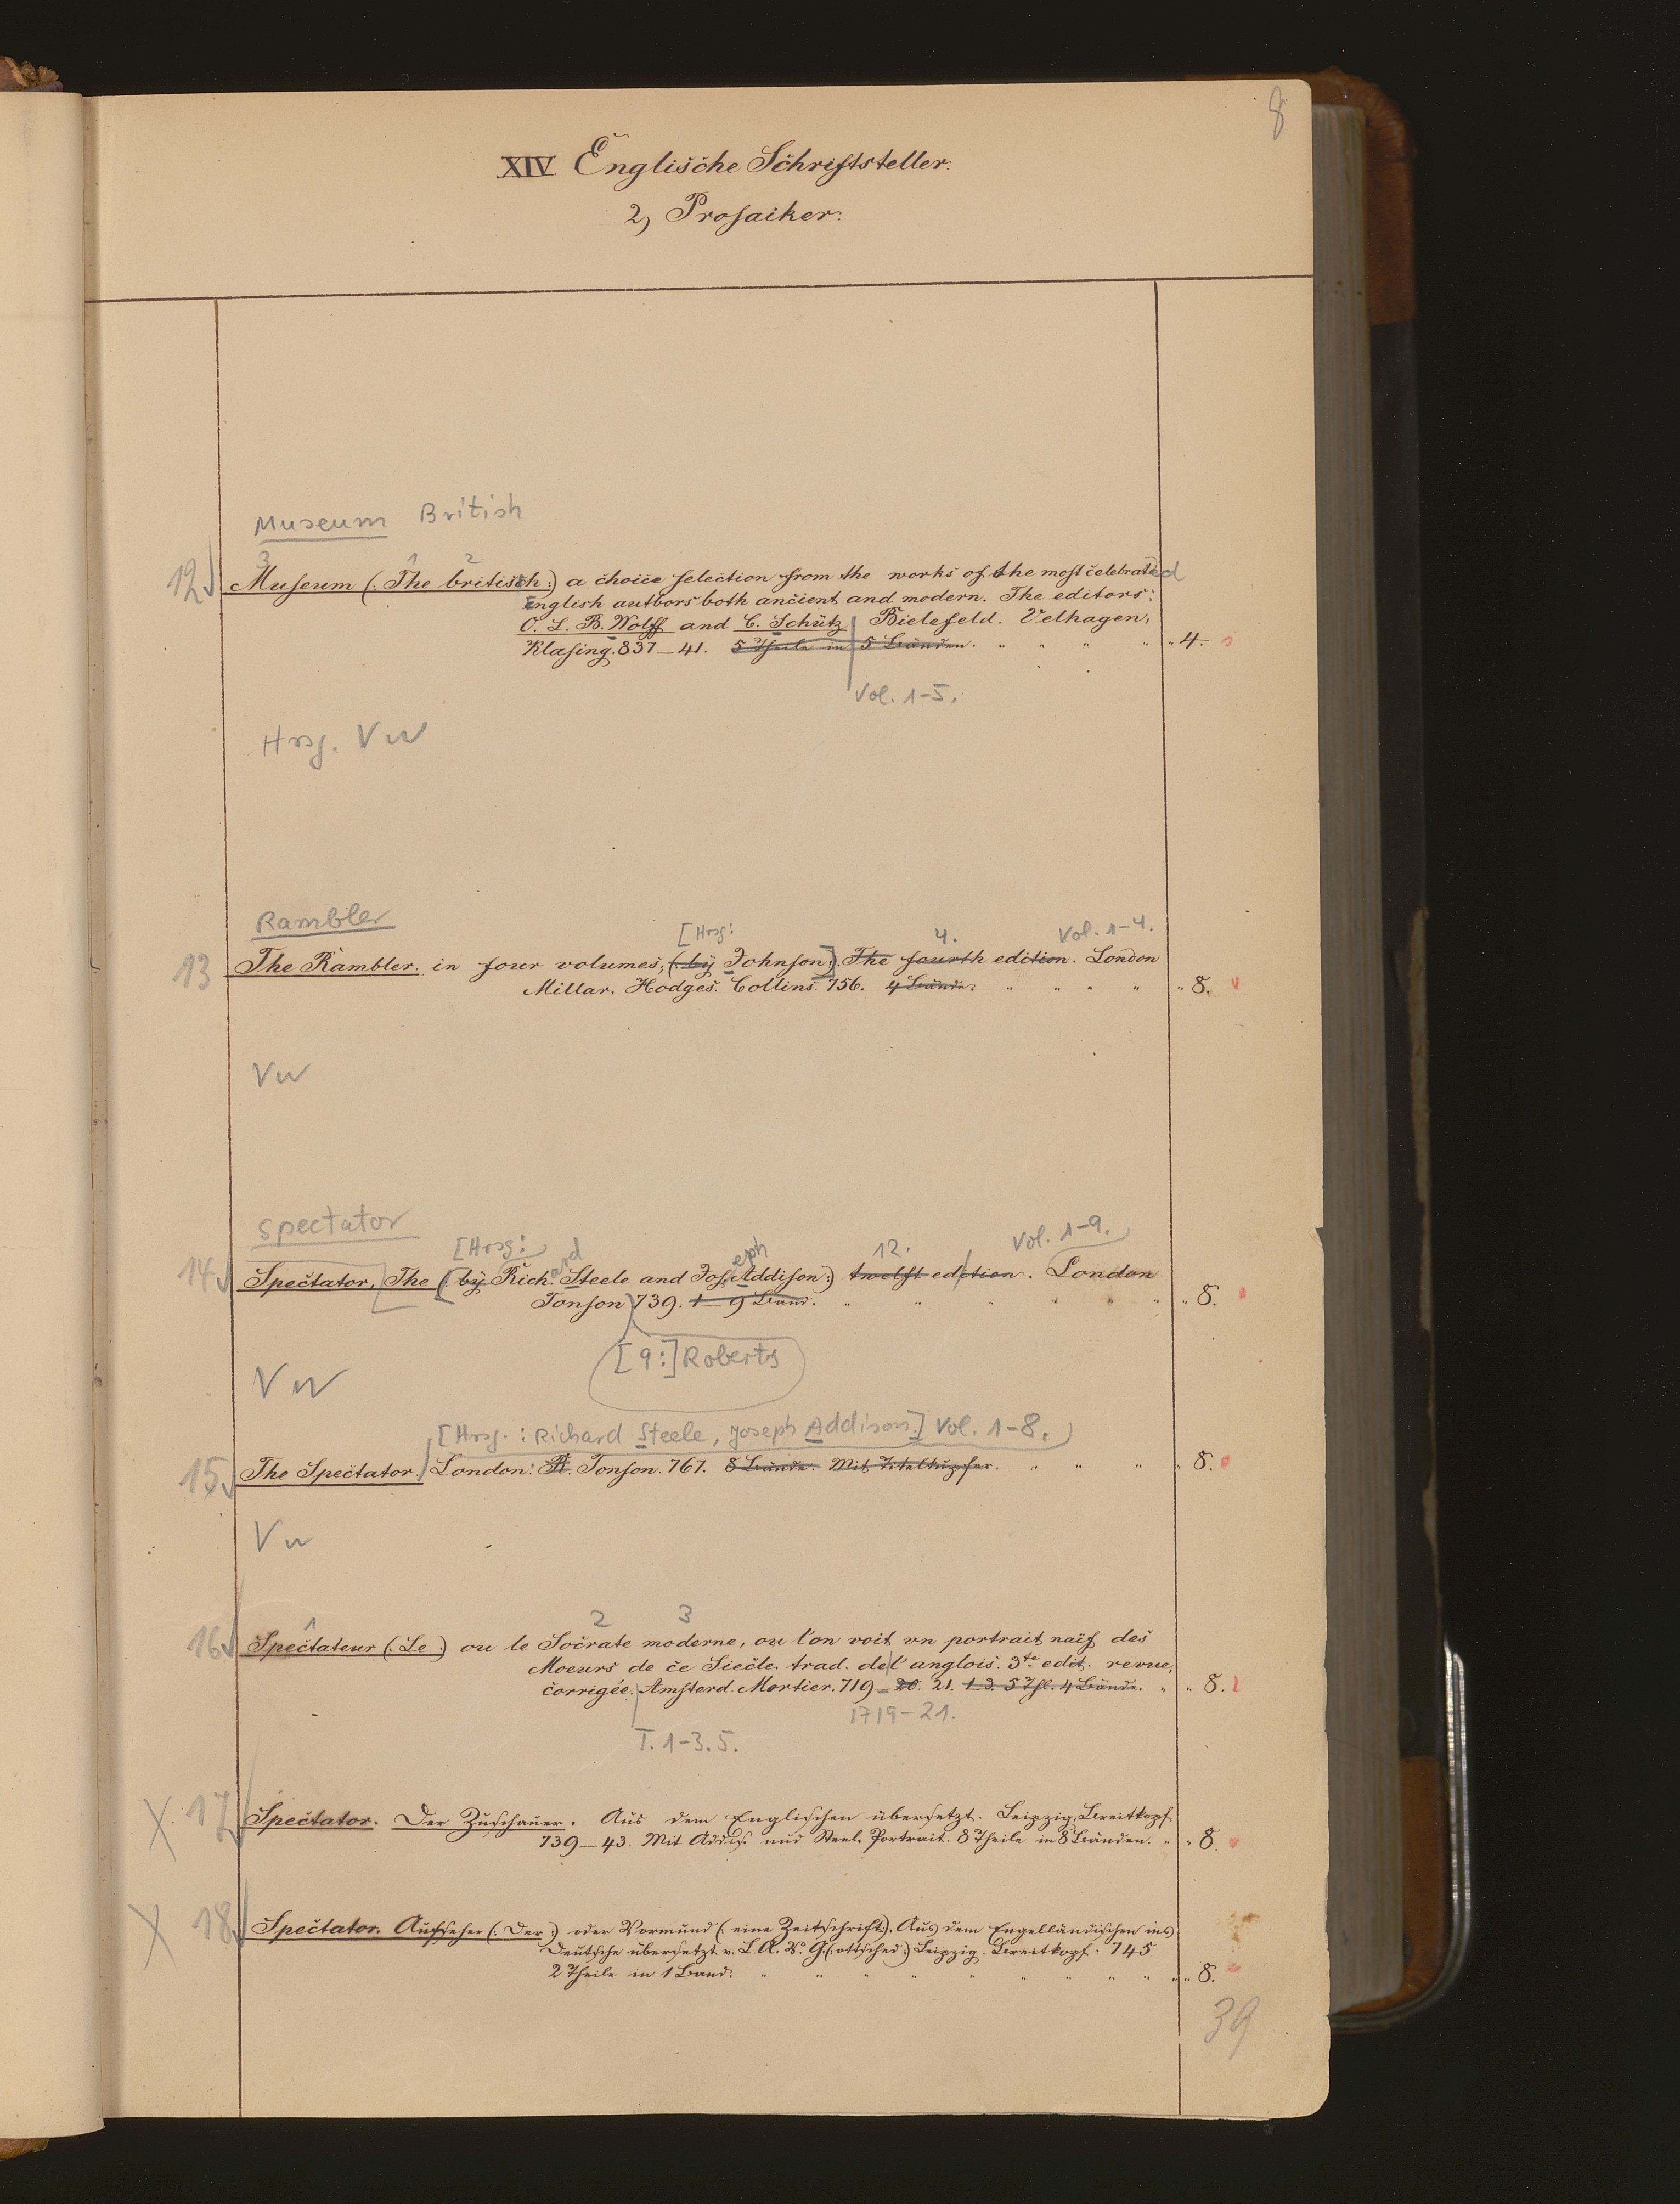 8
XIV Englische Schriftsteller.
2, Prosaiker.
Museum British
3 1 2
12 Museum (: The britisch :) a choice selection from the works of the most celebrated
english authors both ancient and modern. The editors:
O. L. B. Wolff and C. Schütz Bielefeld. Velhagen,
Klasing. 837–41. 5 Theile in 5 Bänden. " " " " " 4.
Vol. 1-5.
Hrsg. VW
Rambler
[Hrsg: 4. Vol. 1-4.
13 The Rambler. in four volumes, (: by Johnson :). The fourth edition. London
Millar. Hodges. Collins. 756. 4 Bände. " " " " " 8.
VW
Spectator
[Hrsg: ard eph 12. Vol. 1-9.
14 Spectator, The (: by Rich. Steele and Jos. Addison :) twelft edction. London
Tonson 739. 1–9 Band. " " " " " " " 8.
[9:] Roberts
VW
[Hrsg.: Richard Steele, Joseph Addison.] Vol. 1-8.
15 The Spectator. London: R. Tonson. 767. 8 Bände. Mit Titelkupfer. " " " " 8.
VW
1 2 3
16 Spectateur (: Le :) ou le Socrate moderne, ou l'on voit un portrait naïf des
Moeurs de ce Siecle. trad. de l'anglois. 3te edit. revue,
corrigée. Amsterd. Mortier. 719–20. 21. 1–3. 5 Thl. 4 Bände. " " 8.
1719-21.
T. 1-3. 5.
X 17 Spectator. Der Zuschauer. Aus dem Englischen übersetzt. Leipzig, Breitkopf
739–43. Mit Addis. und Steel. Portrait. 8 Theile in 8 Bänden. " " 8.
X 18 Spectator. Aufseher (: Der :) oder Vormund (: eine Zeitschrift :). Aus dem Engelländischen ins
Deutsche übersetzt v. L. A. V. G. (: ottsched :) Leipzig. Breitkopf. 745
2 Theile in 1 Band. " " " " " " " " " " " 8.
39